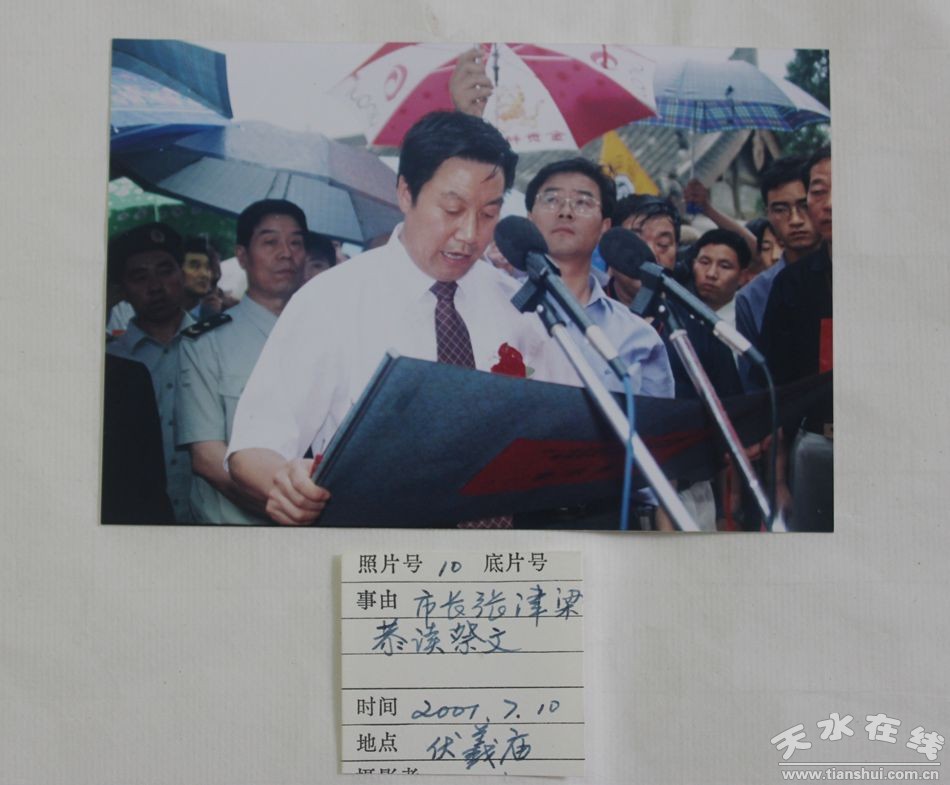 照片号 10 底片号
事由 市长张津梁
恭读祭文
时间 2001.7.10
地点 伏羲庙
摄影者
天水在线
www.tianshui.com.cn